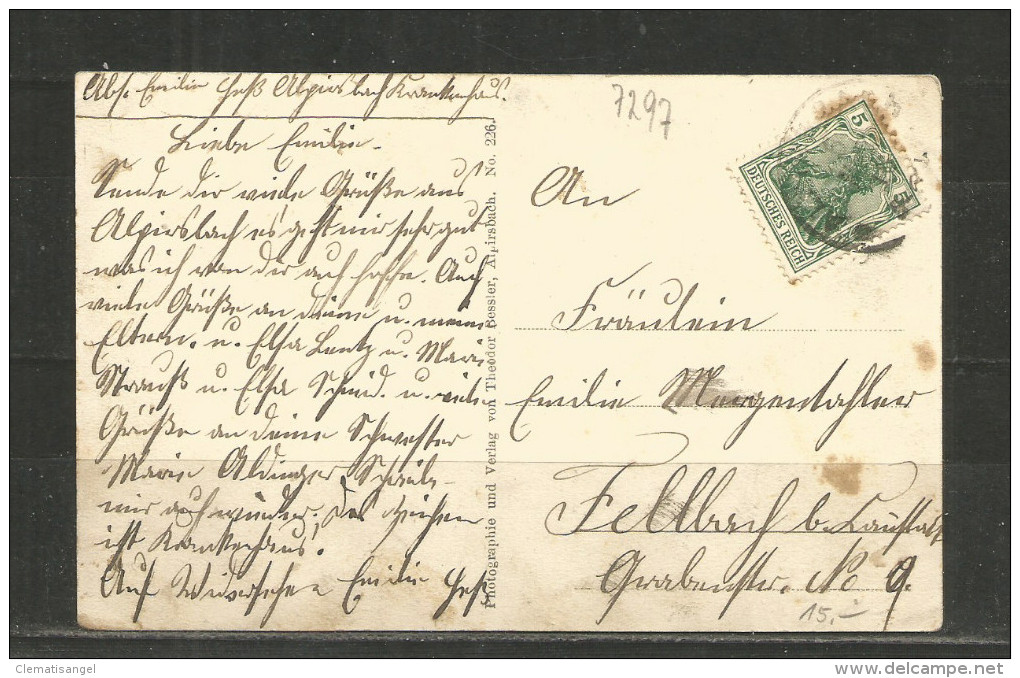 Abs. Emilie Heß Alpirsbach Krankenhaus.
Liebe Emilie.
Sende dir viele Grüße aus
Alpirsbach es geht mir sehr gut
was ich von dir auch hoffe. Auch
viele Grüße an deine u. meine
Eltern. u. Elsa Lentz u. Marie
Strauß u. Elsa Schmid. u. viele
Grüße an deine Schwester
Marie Aldinger Schreibe
mir auch wieder. Das Zeichen
ist Krankenhaus.
Auf Widersehen Emilie Heß
Photographie und Verlag von Theodor Bessler, Alpirsbach. No. 226.
7297
5 5
DEUTSCHES REICH
An
Fräulein
Emilie Morgenthaler
Fellbach b. Cannstatt
Grabenstr. No 9.
15.-
Clematisangel
delcampe.net